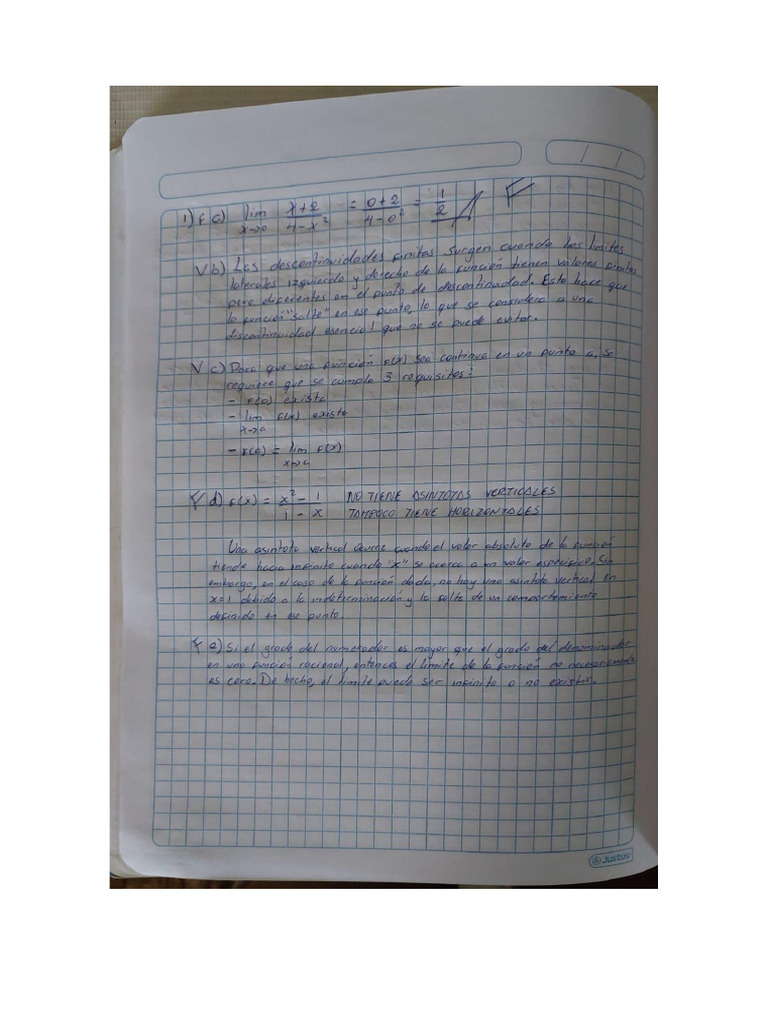 / /
1) F a) lim x→0 x+2 / 4-x² = 0+2 / 4-0² = 1/2 F
V b) Las descontinuidades finitas surgen cuando los limites
laterales izquierdo y derecho de la función tienen valores finitos
pero diferentes en el punto de discontinuidad. Esto hace que
la función "salte" en ese punto, lo que se considera a una
discontinuidad esencial que no se puede evitar.
V c) Para que una función f(x) sea continua en un punto a, se
requiere que se cumpla 3 requisitos:
- f(a) exista
- lim x→a f(x) exista
- f(a) = lim x→a f(x)
F d) f(x) = x² - 1 / 1 - x NO TIENE ASINTOTAS VERTICALES
TAMPOCO TIENE HORIZONTALES
Una asintota vertical ocurre cuando el valor absoluto de la función
tiende hacia infinito cuando "x" se acerca a un valor especifico. Sin
embargo, en el caso de la función dada, no hay una asintota vertical en
x=1 debido a la indeterminación y la falta de un comportamiento
definido en ese punto.
F e) Si el grado del numerador es mayor que el grado del denominador
en una función racional, entonces el limite de la función no necesariamente
es cero. De hecho, el limite puede ser infinito o no existir.
Justus